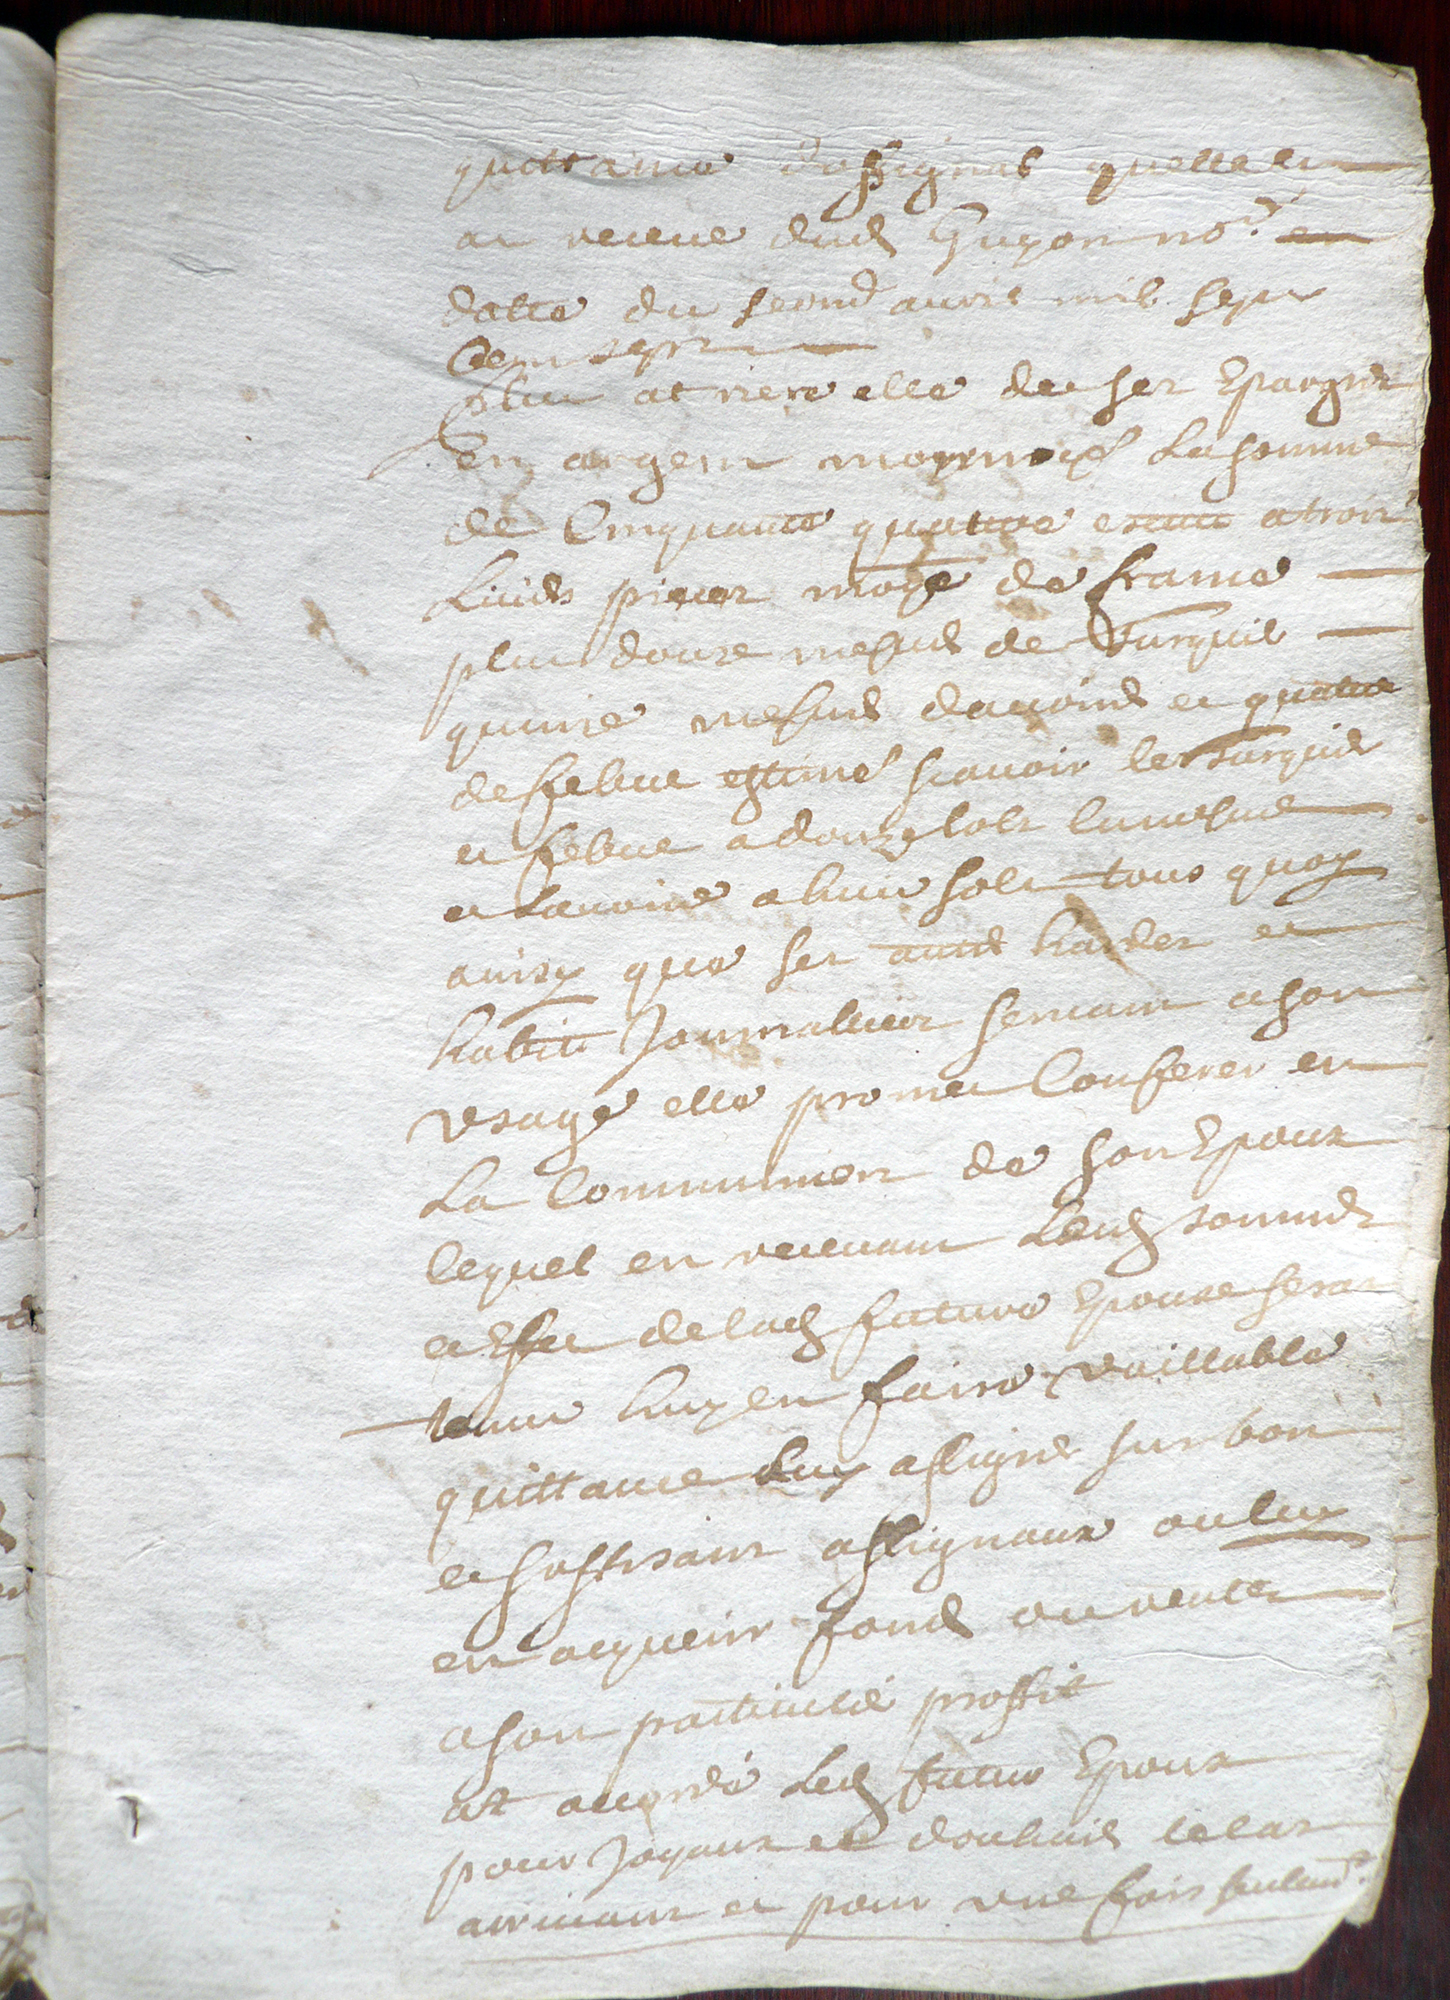 quittance d'assignat quelle en
at receue dud Guyon no.re en
datte du second avril mil sept
cent sept
Plus at riere elle de ses Epargnes
en argent monnoyé La somme
de Cinquante quatre escutz a trois
Livres piece moye de france
plus douze mesures de Turquie
quinze mesures davoine et quatre
de febue estimé scavoir les Turquie
et febue a douze sols la mesure
et Lavoine a huit sols tous quoy
ainsy que ses autres hardes et
habits Journaliers servant a son
usage elle promet Conferer en
La Communion de son Epoux
lequel en recevant Lesd sommes
et Effet de lad future Epouse seras
tenu luy en faire vaillable
quittance Luy assigner sur bon
et suffisant assignaux ou luy
en acquerir fond ou rentes
a son particulié proffit
at accordé Led futur Epoux
pour Joyaux et
arrivant et pour une fois seulem.t